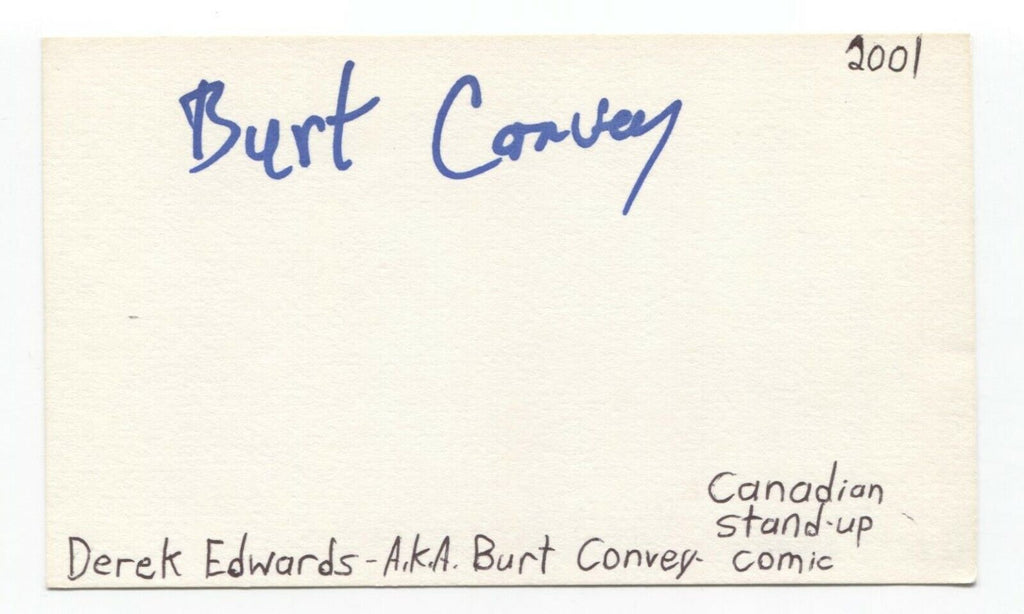 2001
Burt Convey
Canadian
stand-up
Derek Edwards - A.K.A. Burt Convey - comic